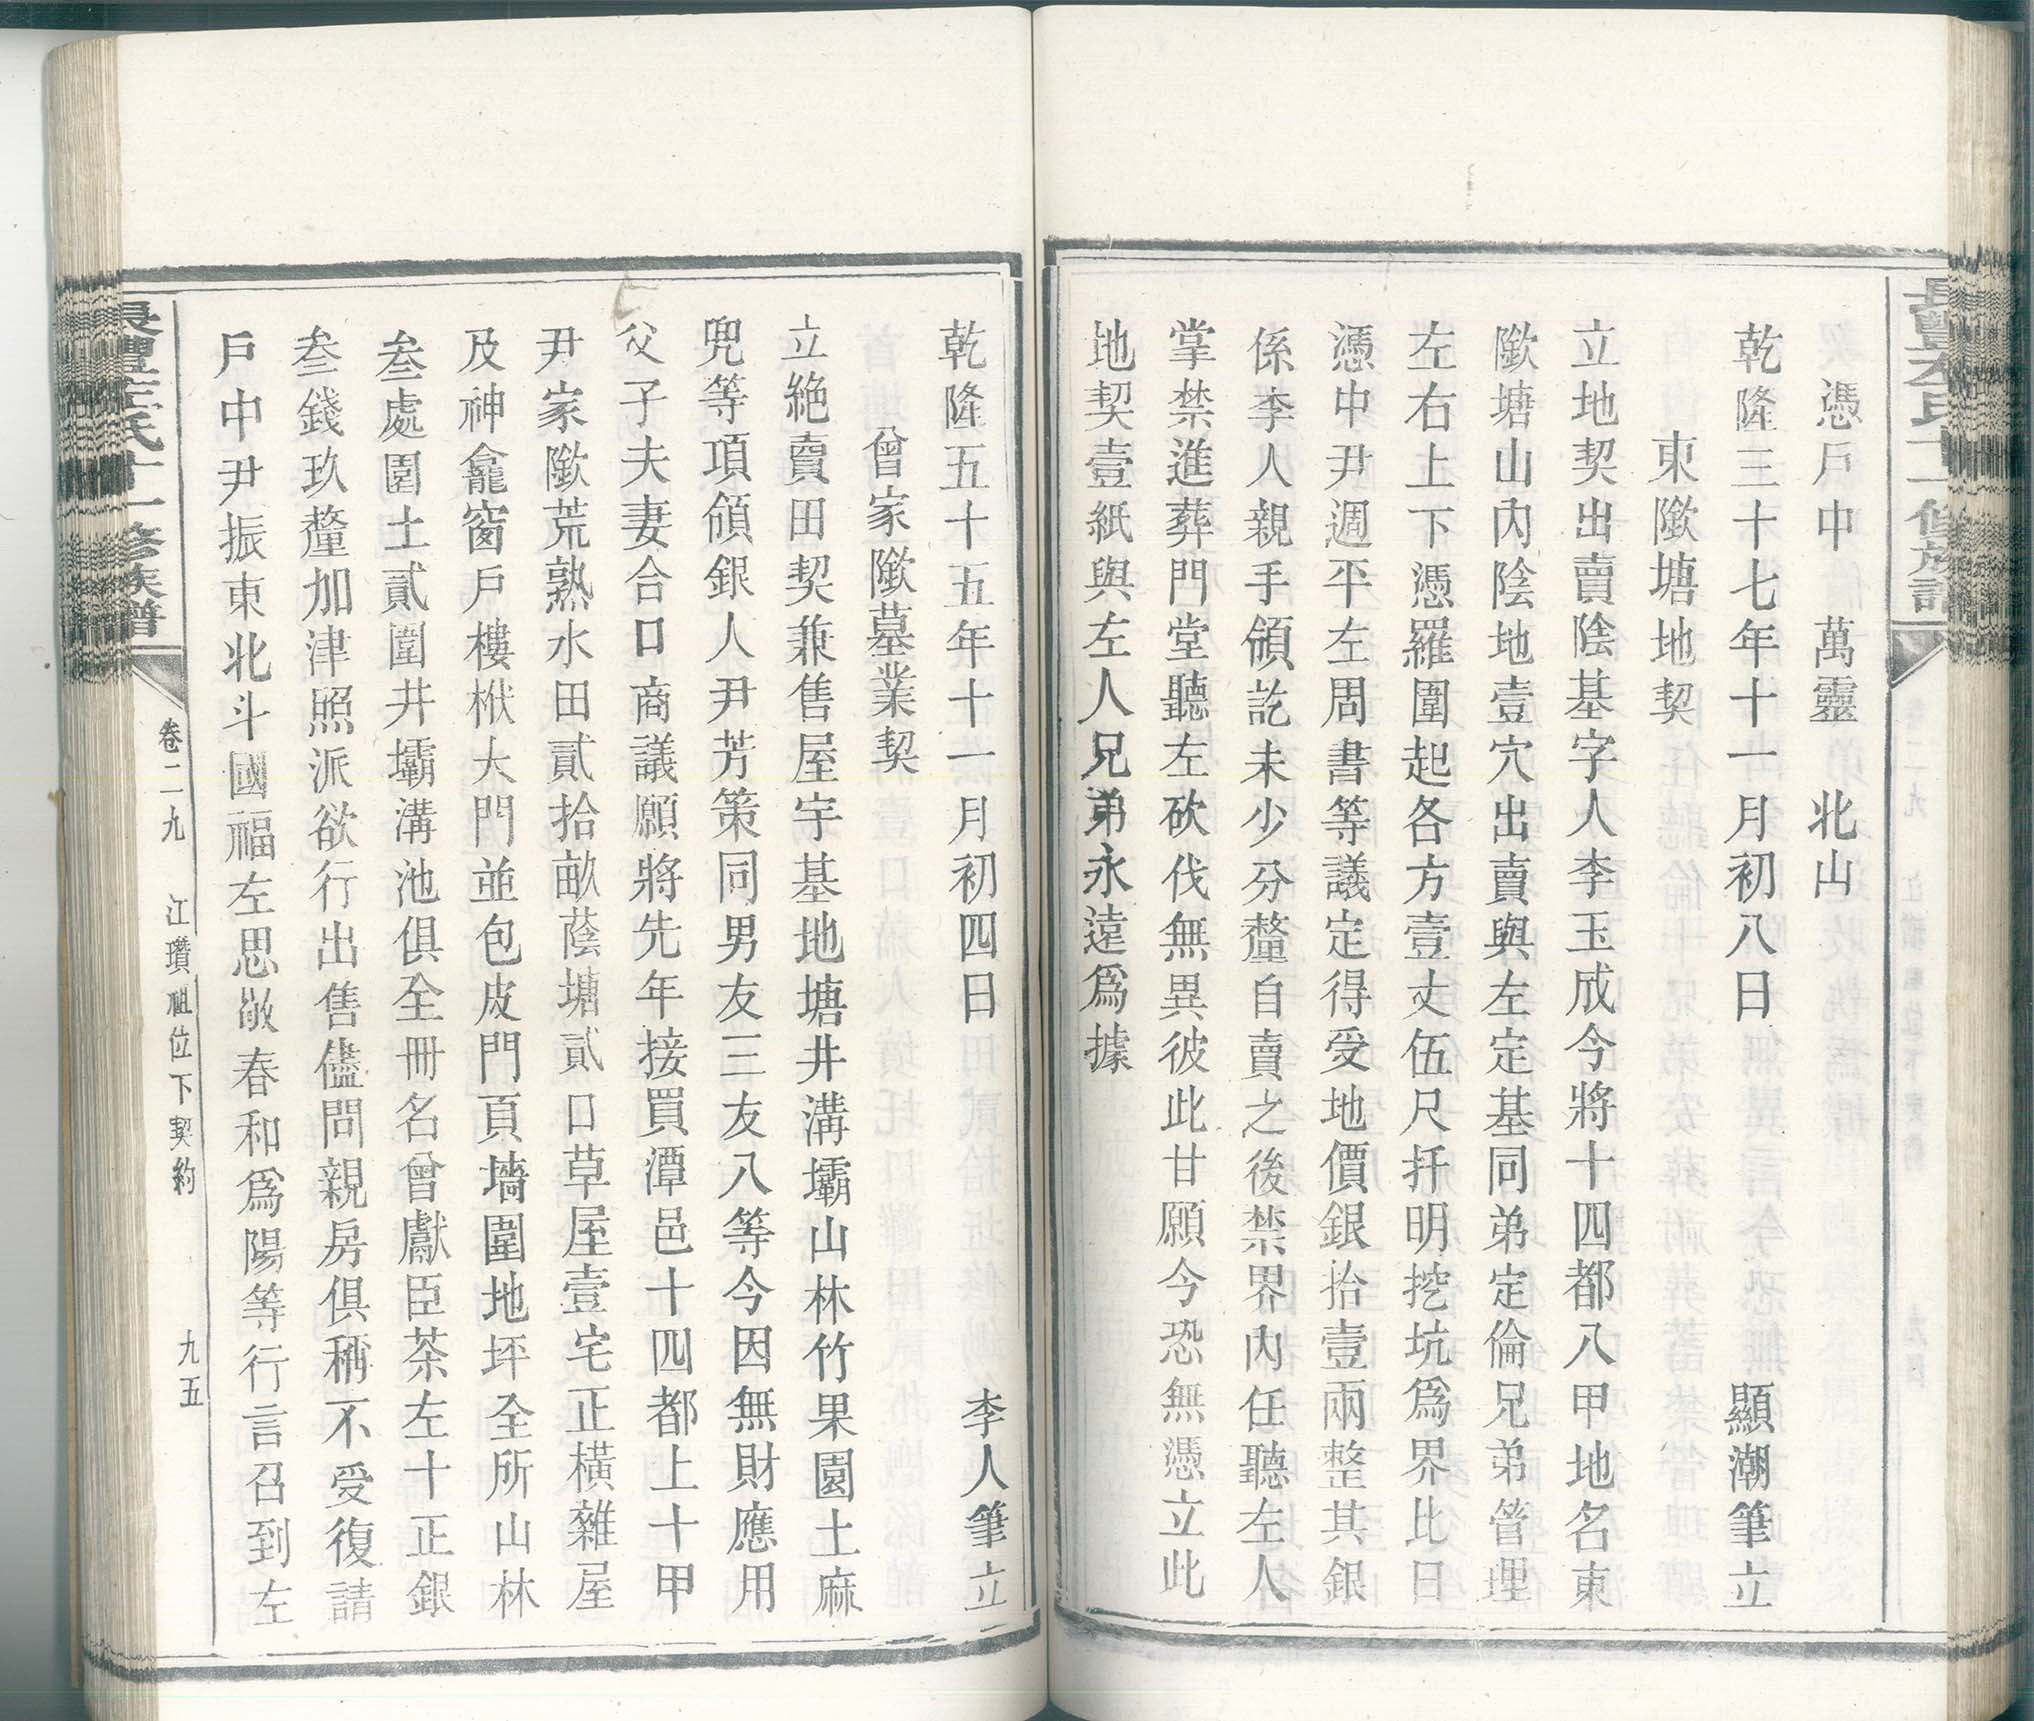 憑戶中　萬靈　北山
乾隆三十七年十一月初八日　顯潮筆立
東塘地契
立地契出賣陰基字人李玉成今將十四都八甲地名東
塘山內陰地壹穴出賣與左定基同弟定倫兄弟管理
左右上下憑羅圍起各方壹丈伍尺扦明挖坑爲界比日
憑中尹週平左周書等議定得受地價銀拾壹兩整其銀
係李人親手領訖未少分釐自賣之後禁界內任聽左人
掌禁進葬門堂聽左砍伐無異彼此甘願今恐無憑立此
地契壹紙與左人兄弟永遠爲據
乾隆五十五年十一月初四日　李人筆立
曾家墓業契
立絕賣田契兼售屋宇基地塘井溝壩山林竹果園土麻
兜等項領銀人尹芳策同男友三友八等今因無財應用
父子夫妻合口商議願將先年接買潭邑十四都上十甲
尹家荒熟水田貳拾畝蔭塘貳口草屋壹宅正橫雜屋
及神龕窗戶樓栿大門並包皮門頁墻圍地坪全所山林
叁處園土貳圍井壩溝池俱全冊名曾獻臣茶左十正銀
叁錢玖釐加津照派欲行出售儘問親房俱稱不受復請
戶中尹振東北斗國福左思敬春和爲陽等行言召到左
長豐左氏十一修族譜
卷二九　江瓚祖位下契約　九五